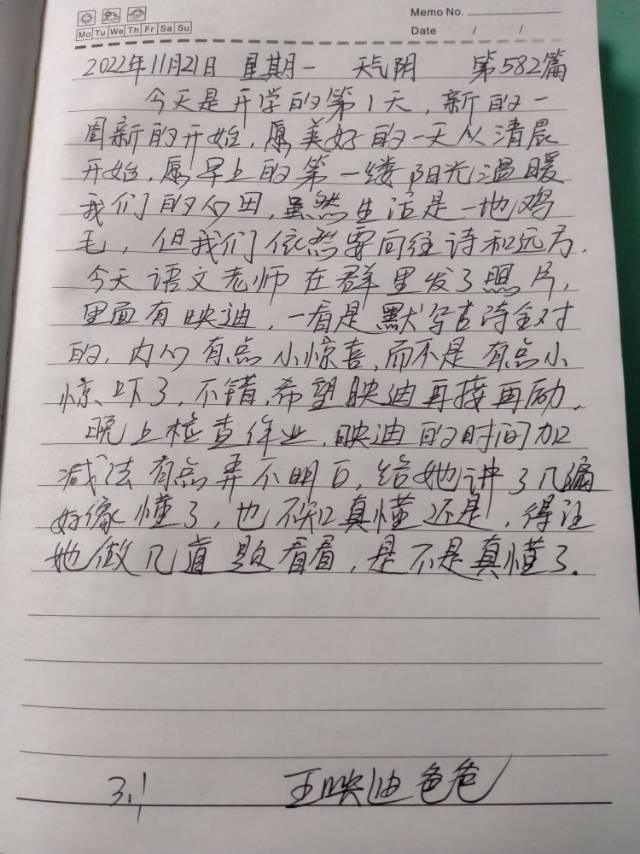 Memo No.
Mo Tu We Th Fr Sa Su
Date / /
2022年11月21日 星期一 天气阴 第582篇
今天是开学的第1天,新的一
周新的开始,愿美好的一天从清晨
开始,愿早上的第一缕阳光温暖
我们的心田,虽然生活是一地鸡
毛,但我们依然要向往诗和远方.
今天语文老师在群里发了照片,
里面有映迪,一看是默写古诗全对
的,内心有点小惊喜,而不是有点小
惊吓了,不错,希望映迪再接再励,
晚上检查作业,映迪的时间加
减法有点弄不明白,给她讲了几遍
好像懂了,也不知真懂还是,得让
她做几道题看看,是不是真懂了.
3.1 王映迪爸爸